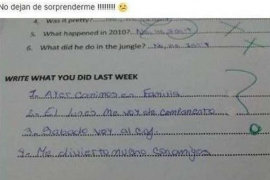 No dejan de sorprenderme !!!!!!!!
4. Was it pretty?
5. What happened in 2010?
6. What did he do in the jungle?
WRITE WHAT YOU DID LAST WEEK
1- Ayer comimos en Familia
2- El lunes Me voy de
3- Sabado voy al
4- Me divierto mucho con amigos